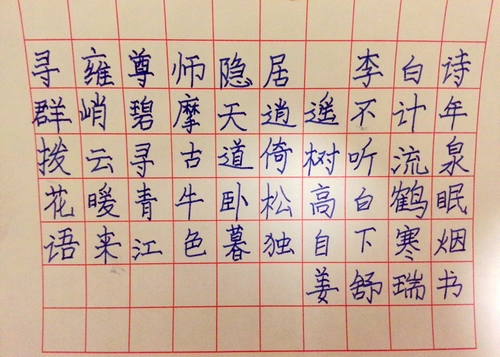 寻雍尊师隐居 李白诗
群峭碧摩天逍遥不计年
拨云寻古道倚树听流泉
花暖青牛卧松高白鹤眠
语来江色暮独自下寒烟
姜舒瑞书